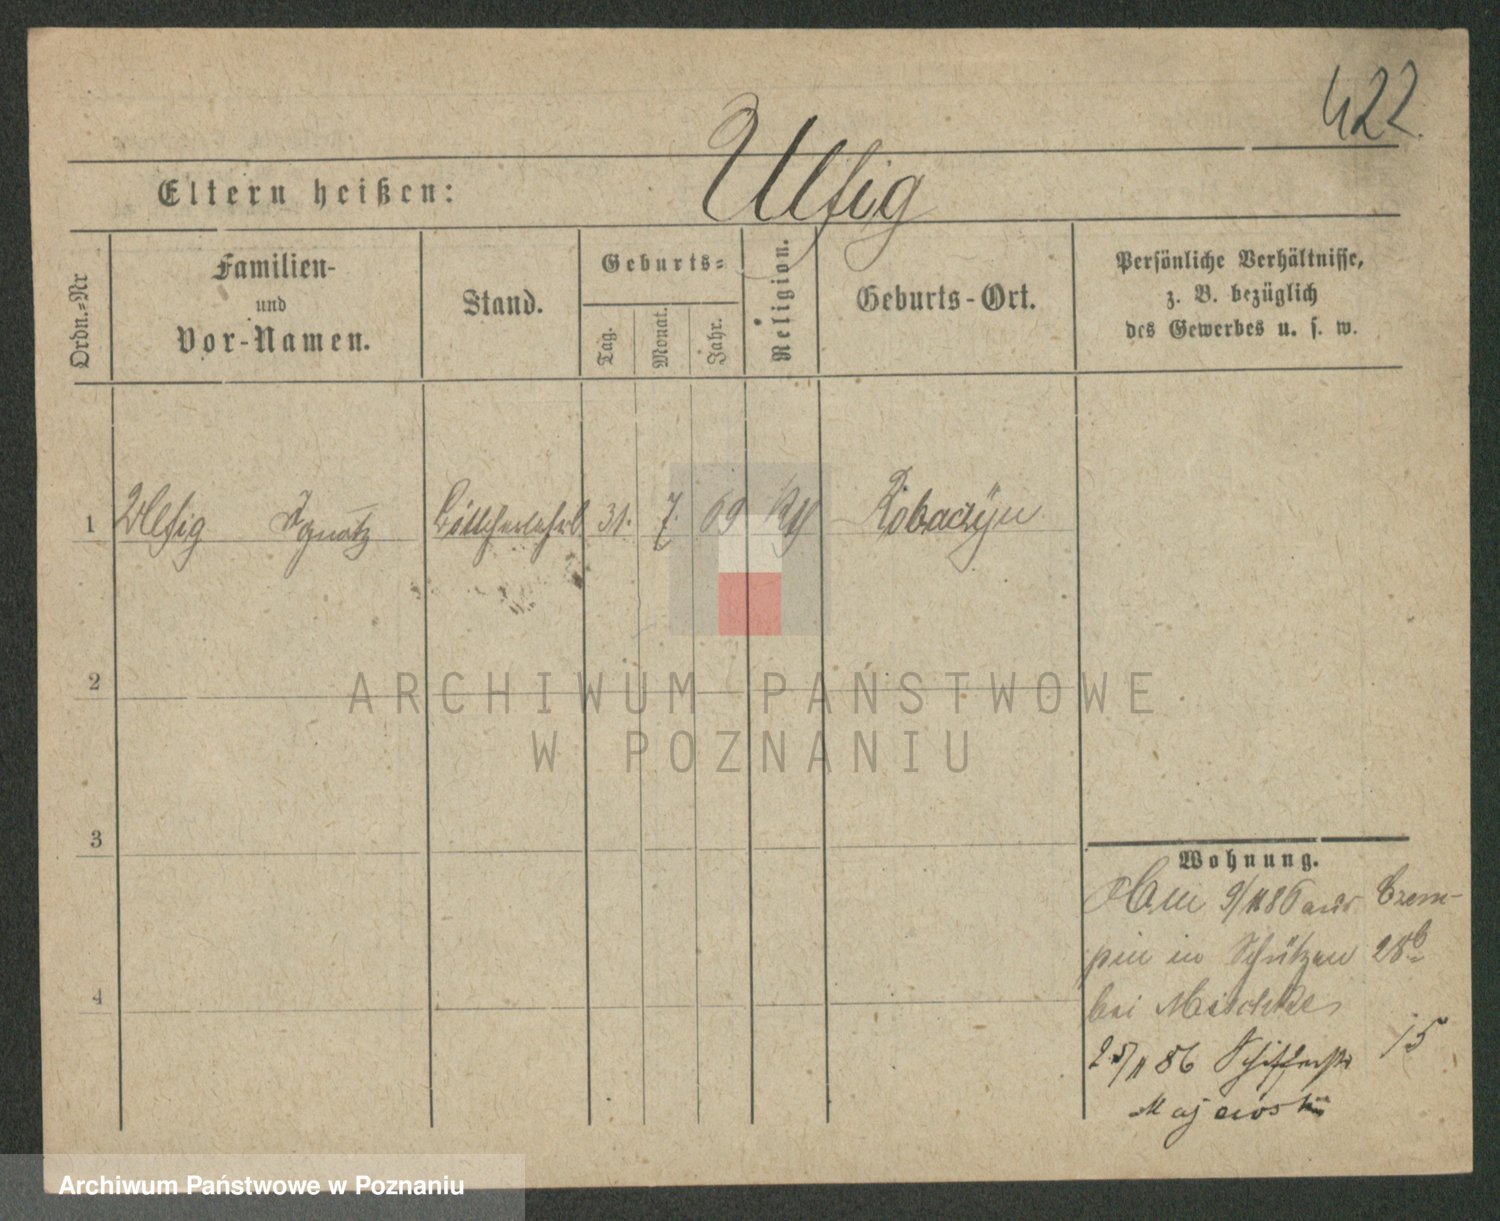 422.
Ulfig
Eltern heißen:
Ordn.-Nr
Familien-
und
Vor-Namen.
Stand.
Geburts-
Tag.
Monat.
Jahr.
Religion.
Geburts-Ort.
Persönliche Verhältnisse,
z. B. bezüglich
des Gewerbes u. s. w.
1 Ulfig Ignatz Böttcherlehrl 31. 7. 69 kth Robaczyn
2
3
4
ARCHIWUM PAŃSTWOWE
W POZNANIU
Wohnung.
9/11 86 aus Czem-
pin in Schützen 28b
bei Mitschke
25/11 86 Schifferstr 15
Majewski
Archiwum Państwowe w Poznaniu